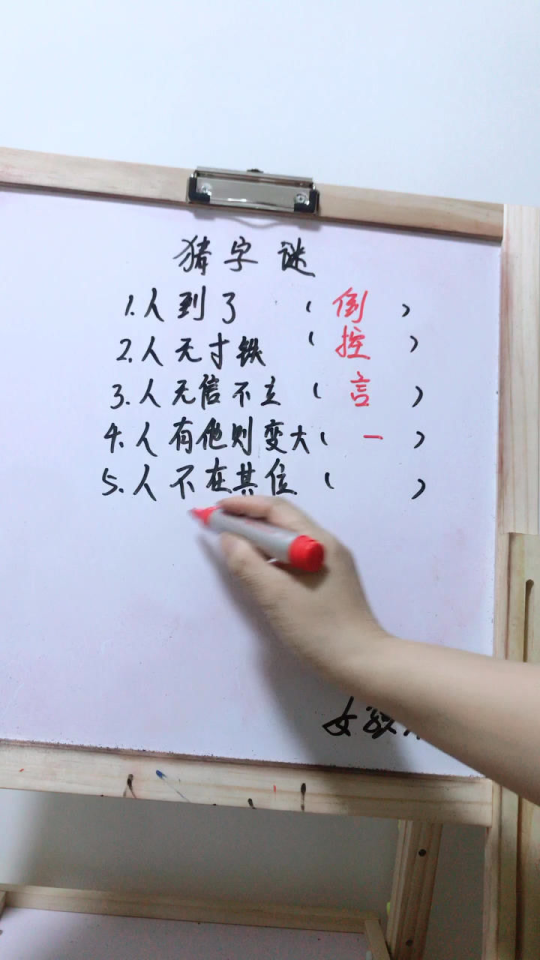 猜字谜
1.人到了 （倒）
2.人无寸铁 （控）
3.人无信不立（言）
4.人有他则变大（一）
5.人不在其位（ ）
女